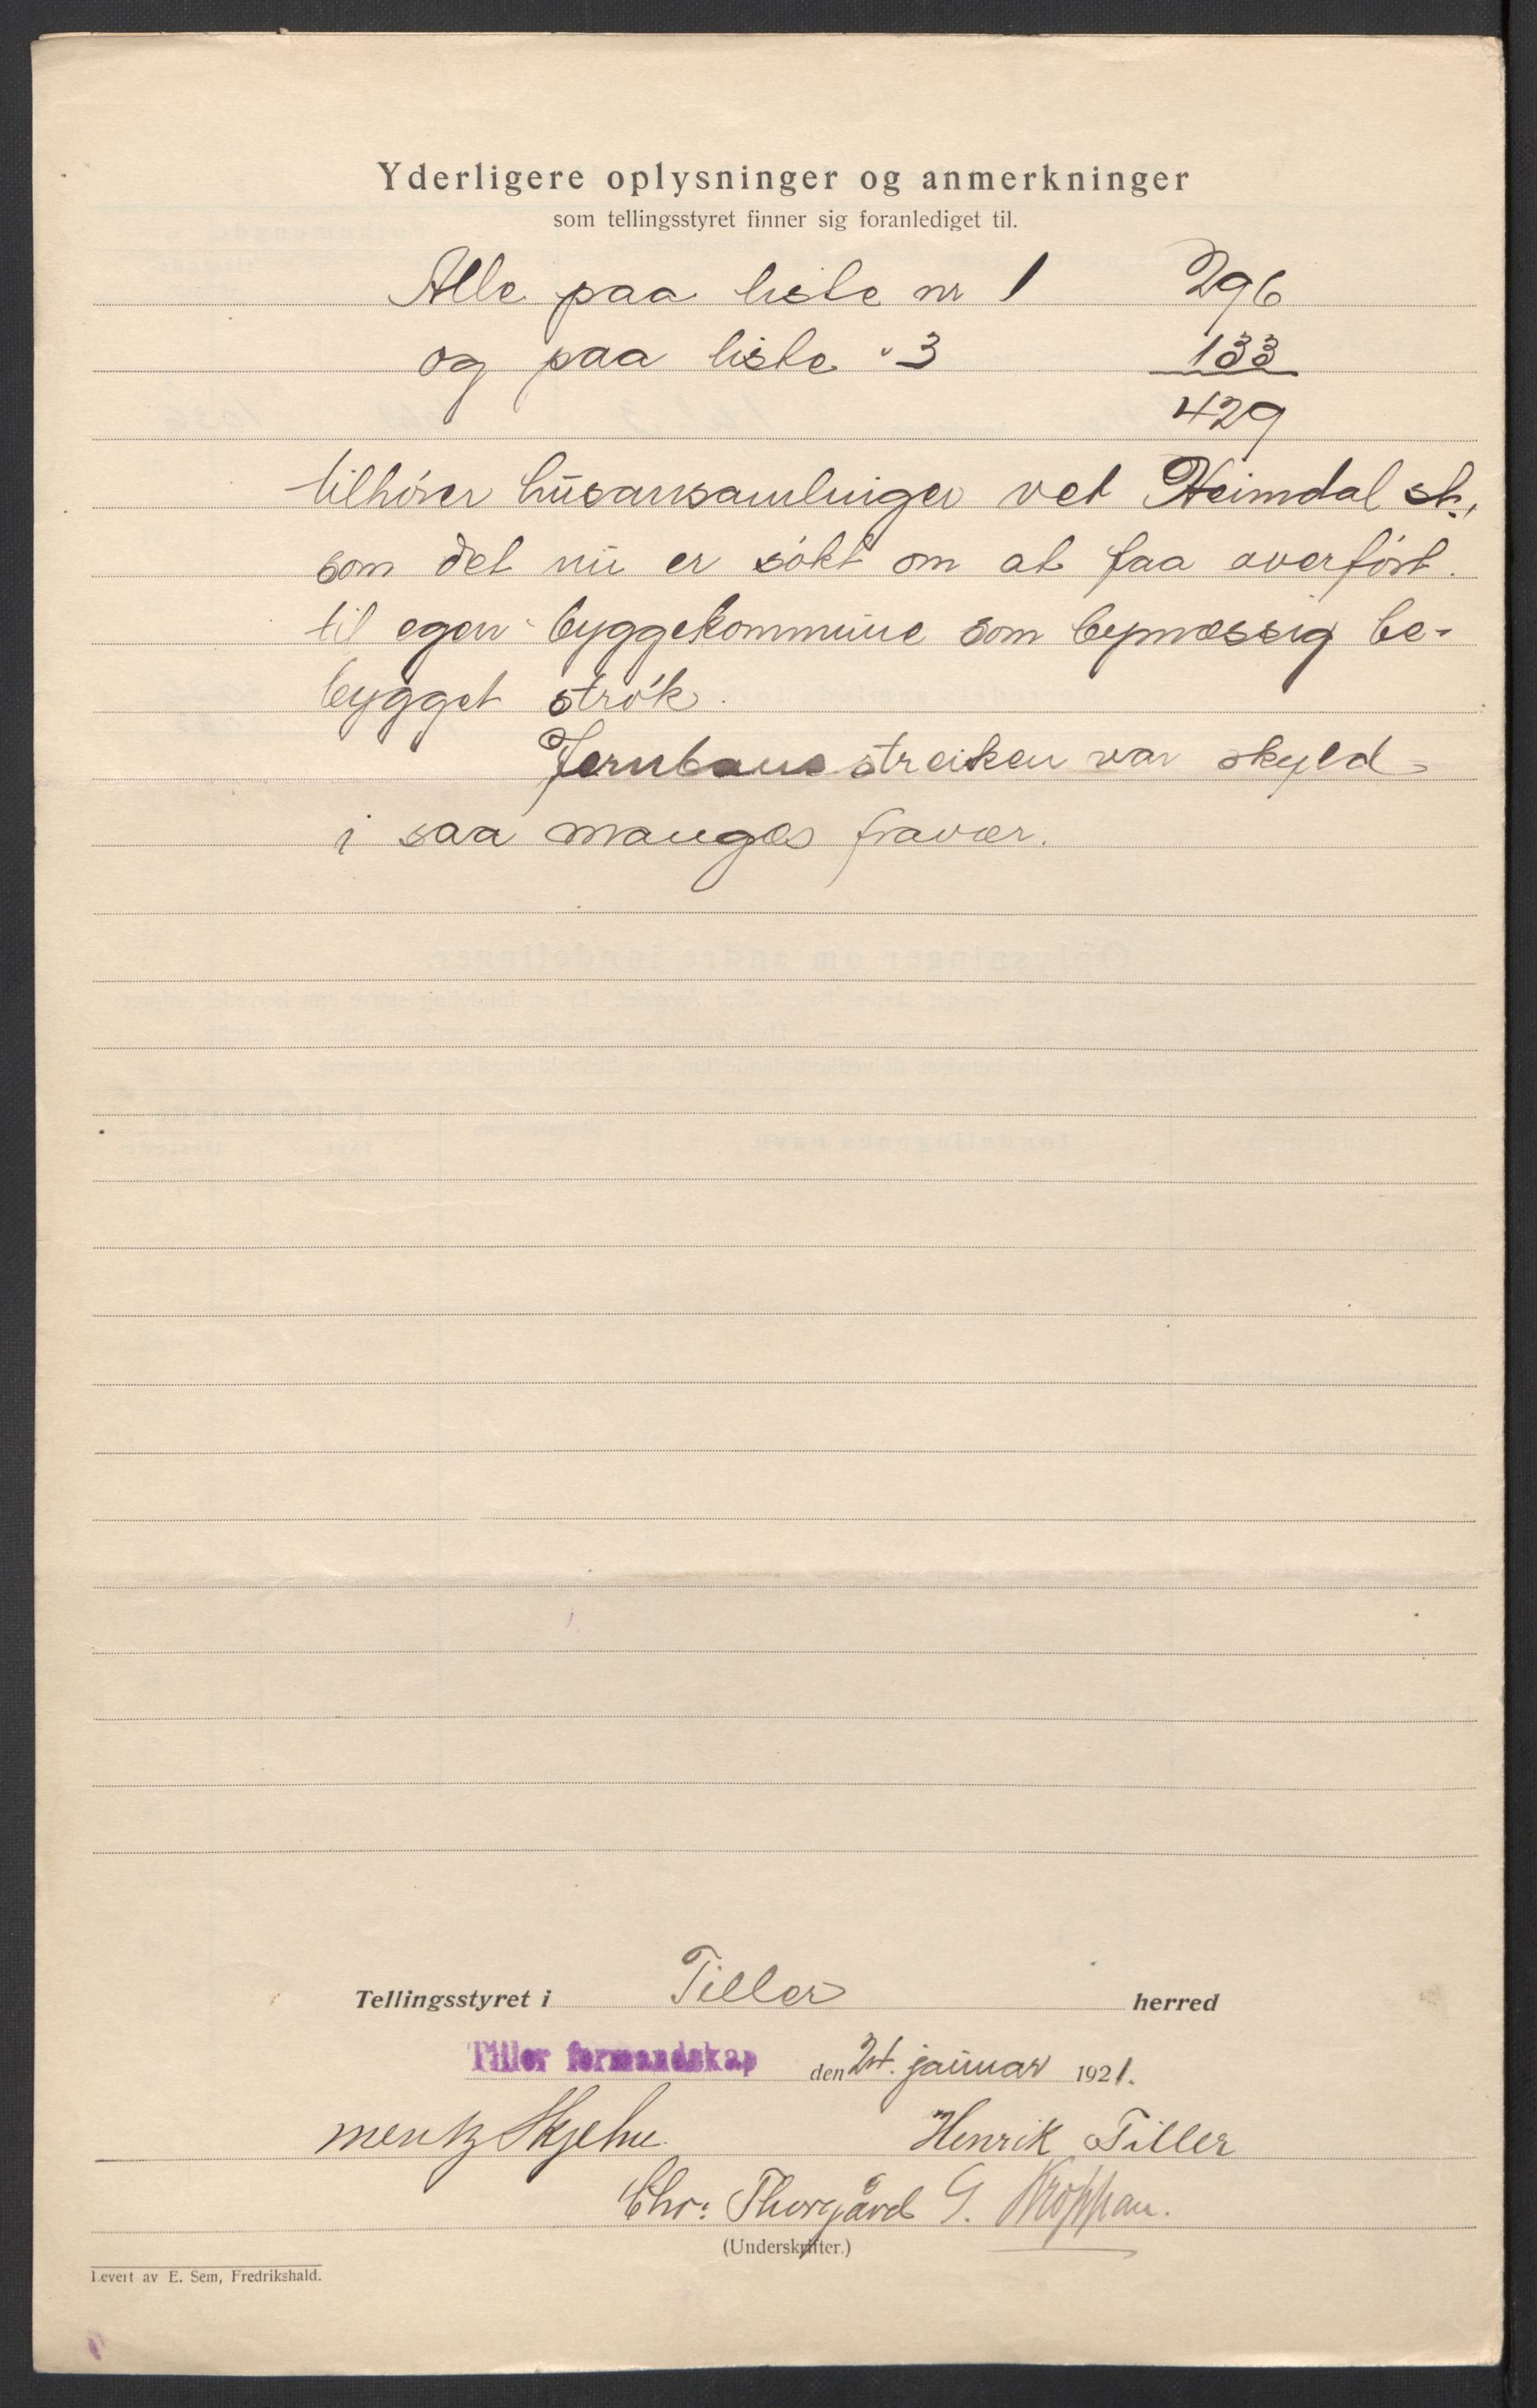 Yderligere oplysninger og anmerkninger
som tellingsstyret finner sig foranlediget til.
Alle paa liste nr 1 296
og paa liste " 3 133
429
tilhører husansamlinger vet Heimdal st.,
som det nu er søkt om at faa overført
til egen byggekommune som bymæssig be-
bygget strøk.
Jernbanestreiken var skyld
i saa manges fravær.
Tellingsstyret i Tiller herred
Tiller formandskap den 24. januar 1921.
Mentz Skjelne Henrik Tiller
Chr. Thorgård G. Kroppan.
(Underskrifter.)
Levert av E. Sem, Fredrikshald.